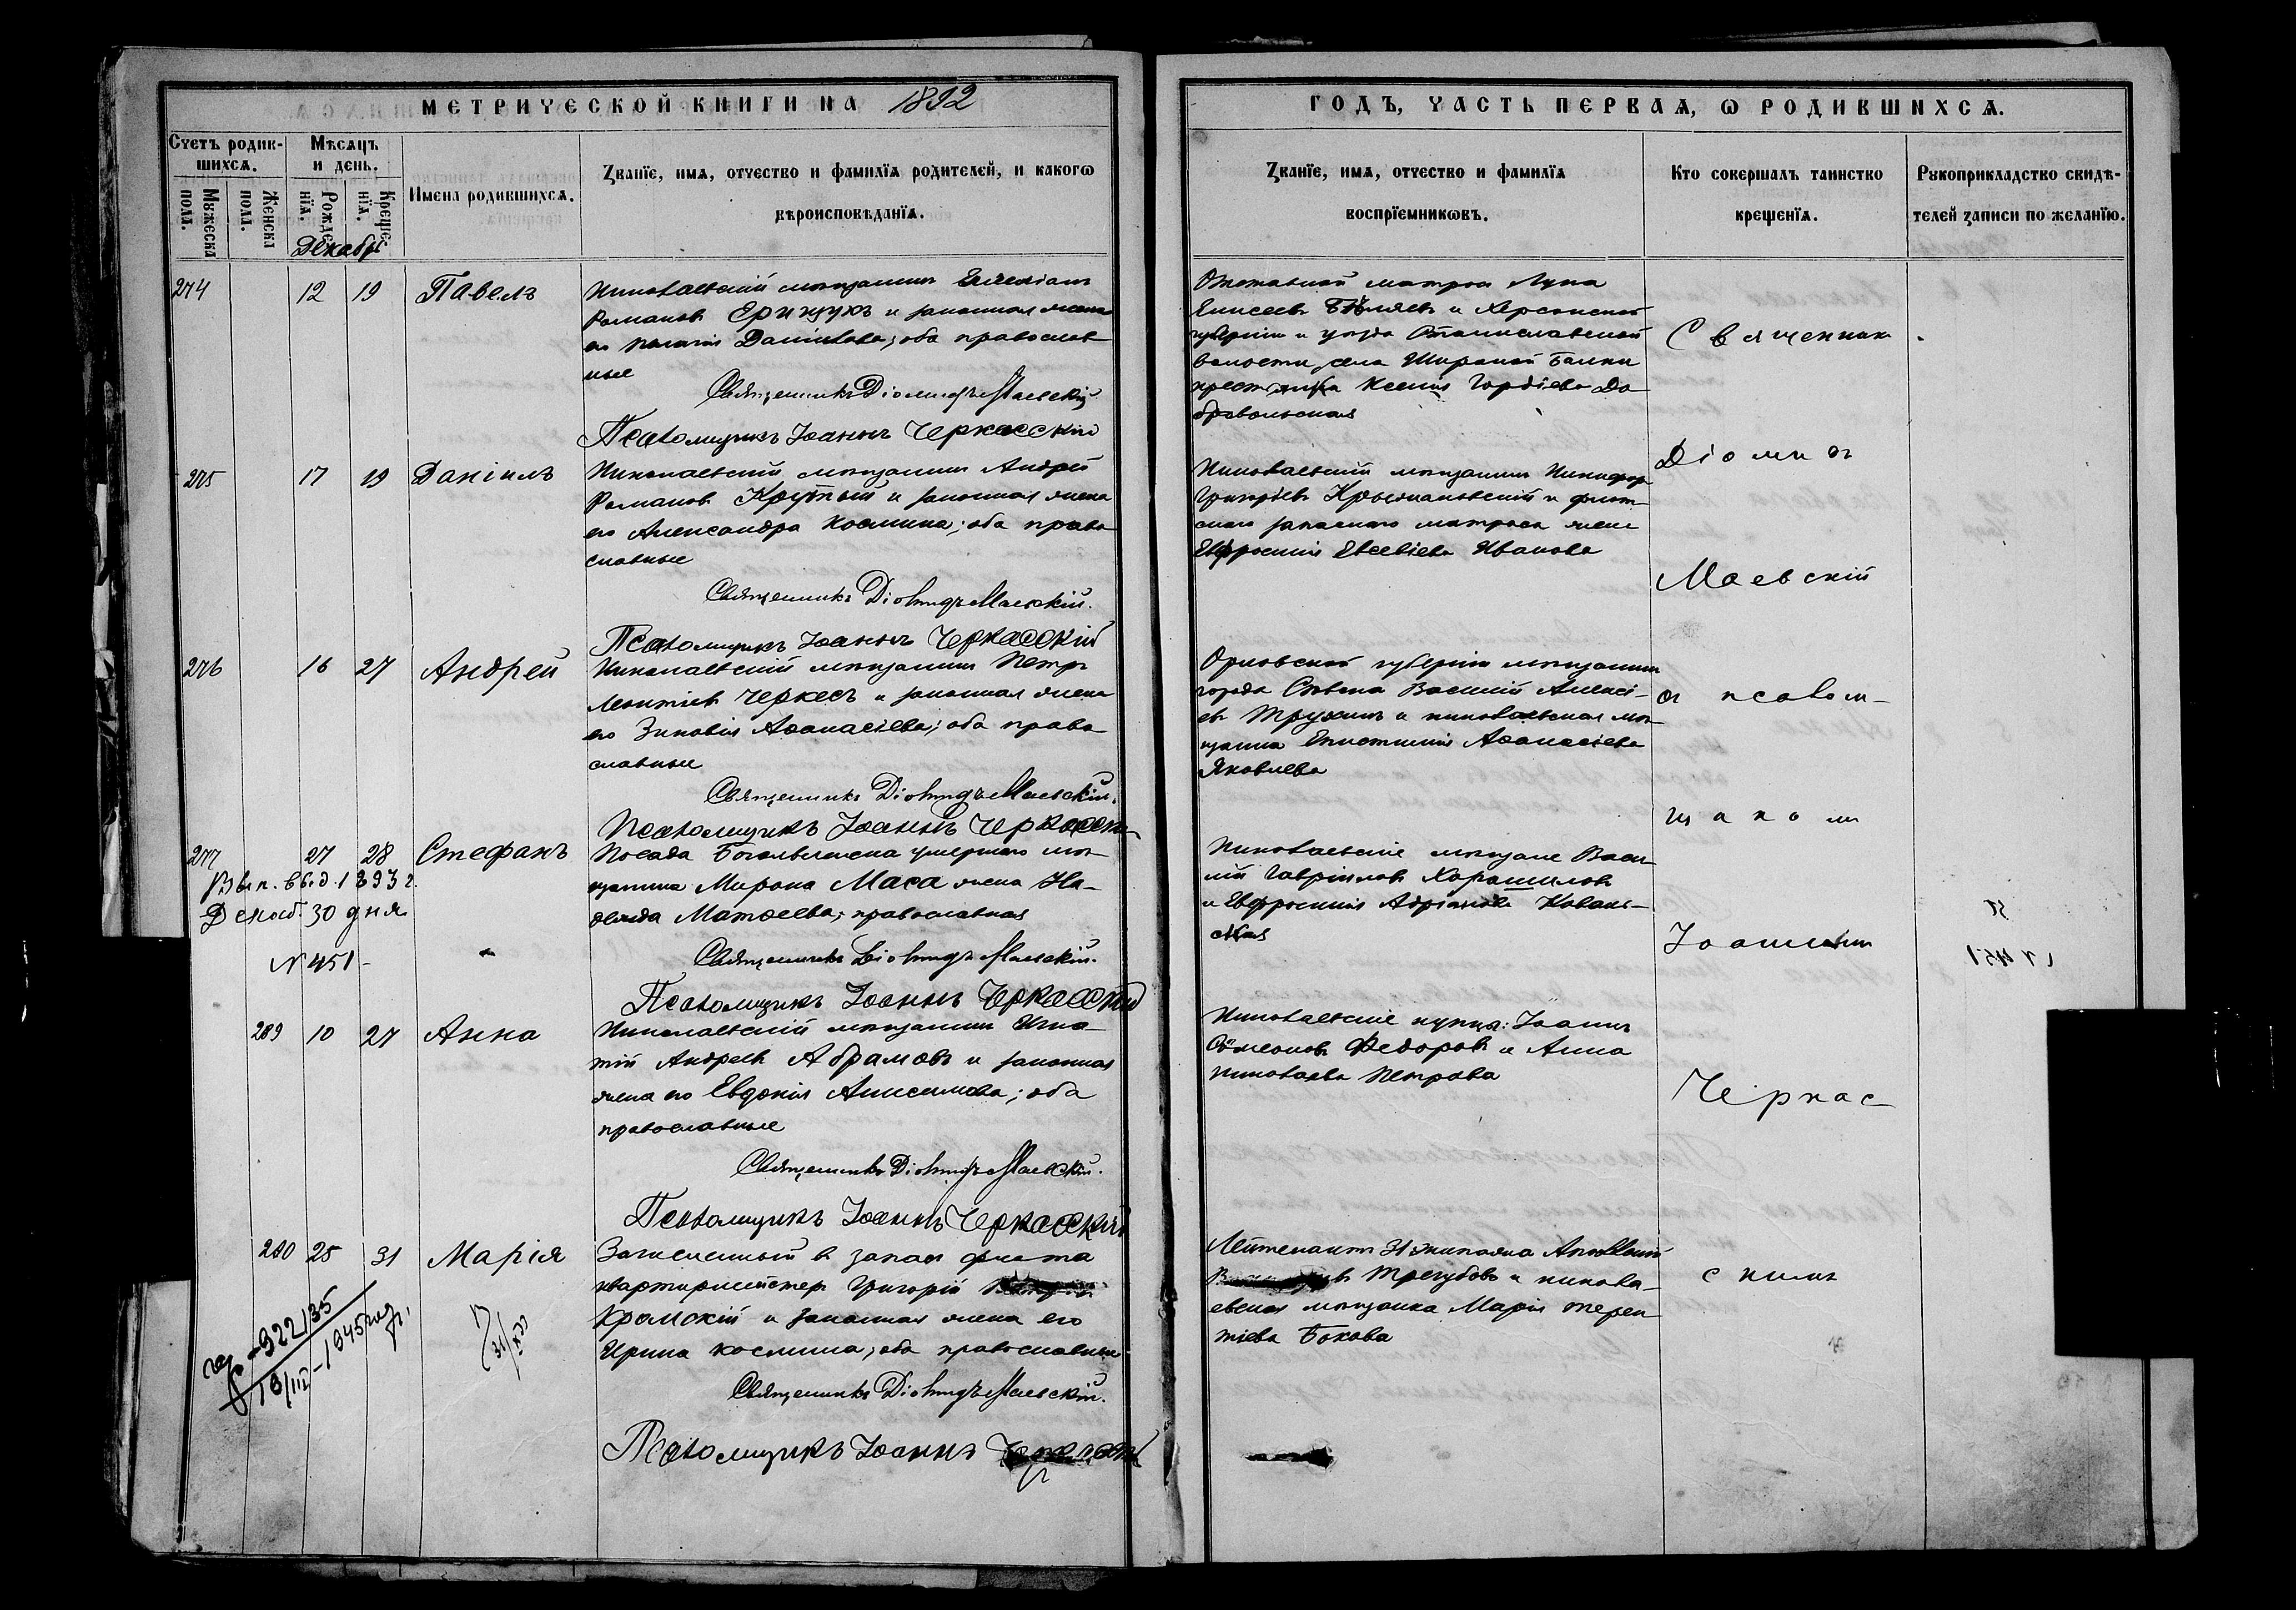 МЕТРИЧЕСКОЙ КНИГИ НА 1892
Счетъ родив-
шихся.
Мужеска
пола.
Женска
пола.
Мѣсяцъ
и день.
Рожде-
нїя.
Креще-
нїя.
Декабрь
Имена родившихся.
Званїе, имя, отчество и фамилїя родителей, и какогѡ
вѣроисповѣданїя.
274 12 19 Павелъ
Николаевскій мѣщанинъ
Романовъ Ерищукъ и законная жена
его Пелагія Данилова; оба православ
ные
Священникъ Діомидъ Маевскій
Псаломщикъ Іоаннъ Черкасскій
275 17 19 Даніилъ
Николаевскій мѣщанинъ Андрей
Романовъ Крутый и законная жена
его Александра Космина; оба право
славные
Священникъ Діомидъ Маевскій.
Псаломщикъ Іоаннъ Черкасскій
276 16 27 Андрей
Николаевскій мѣщанинъ Петръ
Леонтіевъ Черкесъ и законная жена
его Зиновія Аѳанасіева; оба право
славные
Священникъ Діомидъ Маевскій.
Псаломщикъ Іоаннъ Черкасск
277 27 28 Стефанъ
Вып. выд. 1893 г.
Декаб. 30 дня
№ 451 -
Посада Богоявленска умершаго мѣ-
щанина Мирона Маса жена На-
дежда Матѳеева, православная
Священникъ Діомидъ Маевскій.
Псаломщикъ Іоаннъ Черкасскій
289 10 27 Анна
Николаевскій мѣщанинъ Игна-
тій Андреевъ Абрамовъ и законная
жена его Евдокія Анисимова; оба
православные
Священникъ Діомидъ Маевскій.
Псаломщикъ Іоаннъ Черкасскій
290 25 31 Марія
922/35
13/III-1945
Зачисленный въ запасъ флота
квартирмейстеръ Григорій
Крамскій и законная жена его
Ирина Космина, оба православные
Священникъ Діомидъ Маевскій.
Псаломщикъ Іоаннъ
ГОДЪ, ЧАСТЬ ПЕРВАЯ, Ѡ РОДИВШИХСЯ.
Званїе, имя, отчество и фамилїя
воспрїемникѡвъ.
Кто совершалъ таинство
крещенїя.
Рукоприкладство свидѣ-
телей записи по желанїю.
Отставной матросъ Лука
Елисеевъ Бѣляевъ и Херсонской
губерніи и уѣзда Станиславской
волости, села Широкой Балки
крестьянка Ксенія Гордіева До
бровольская
Николаевскій мѣщанинъ Никифоръ
Григорьевъ Крыжановскій и флот-
скаго запаснаго матроса жена
Евфросинія Евсевіева Иванова
Орловской губерніи мѣщанинъ
города Сѣвска Василій Алексѣ-
евъ Тружинъ и николаевская мѣ-
щанка Епистимія Аѳанасіева
Яковлева
Николаевскіе мѣщане Васи-
лій Гавриловъ Харашиловъ
и Евфросинія Адріанова Коваль-
ская
Николаевскіе купцы: Іоаннъ
Сѵмеоновъ Федоровъ и Анна
Николаева Петрова
Лейтенантъ 31 экипажа Аполлонъ
Трегубовъ и никола-
евская мѣщанка Марія Терен
тіева Бокова
Священникъ
Діомидъ
Маевскій
съ псалом-
щикомъ
Іоанномъ
Черкас-
скимъ